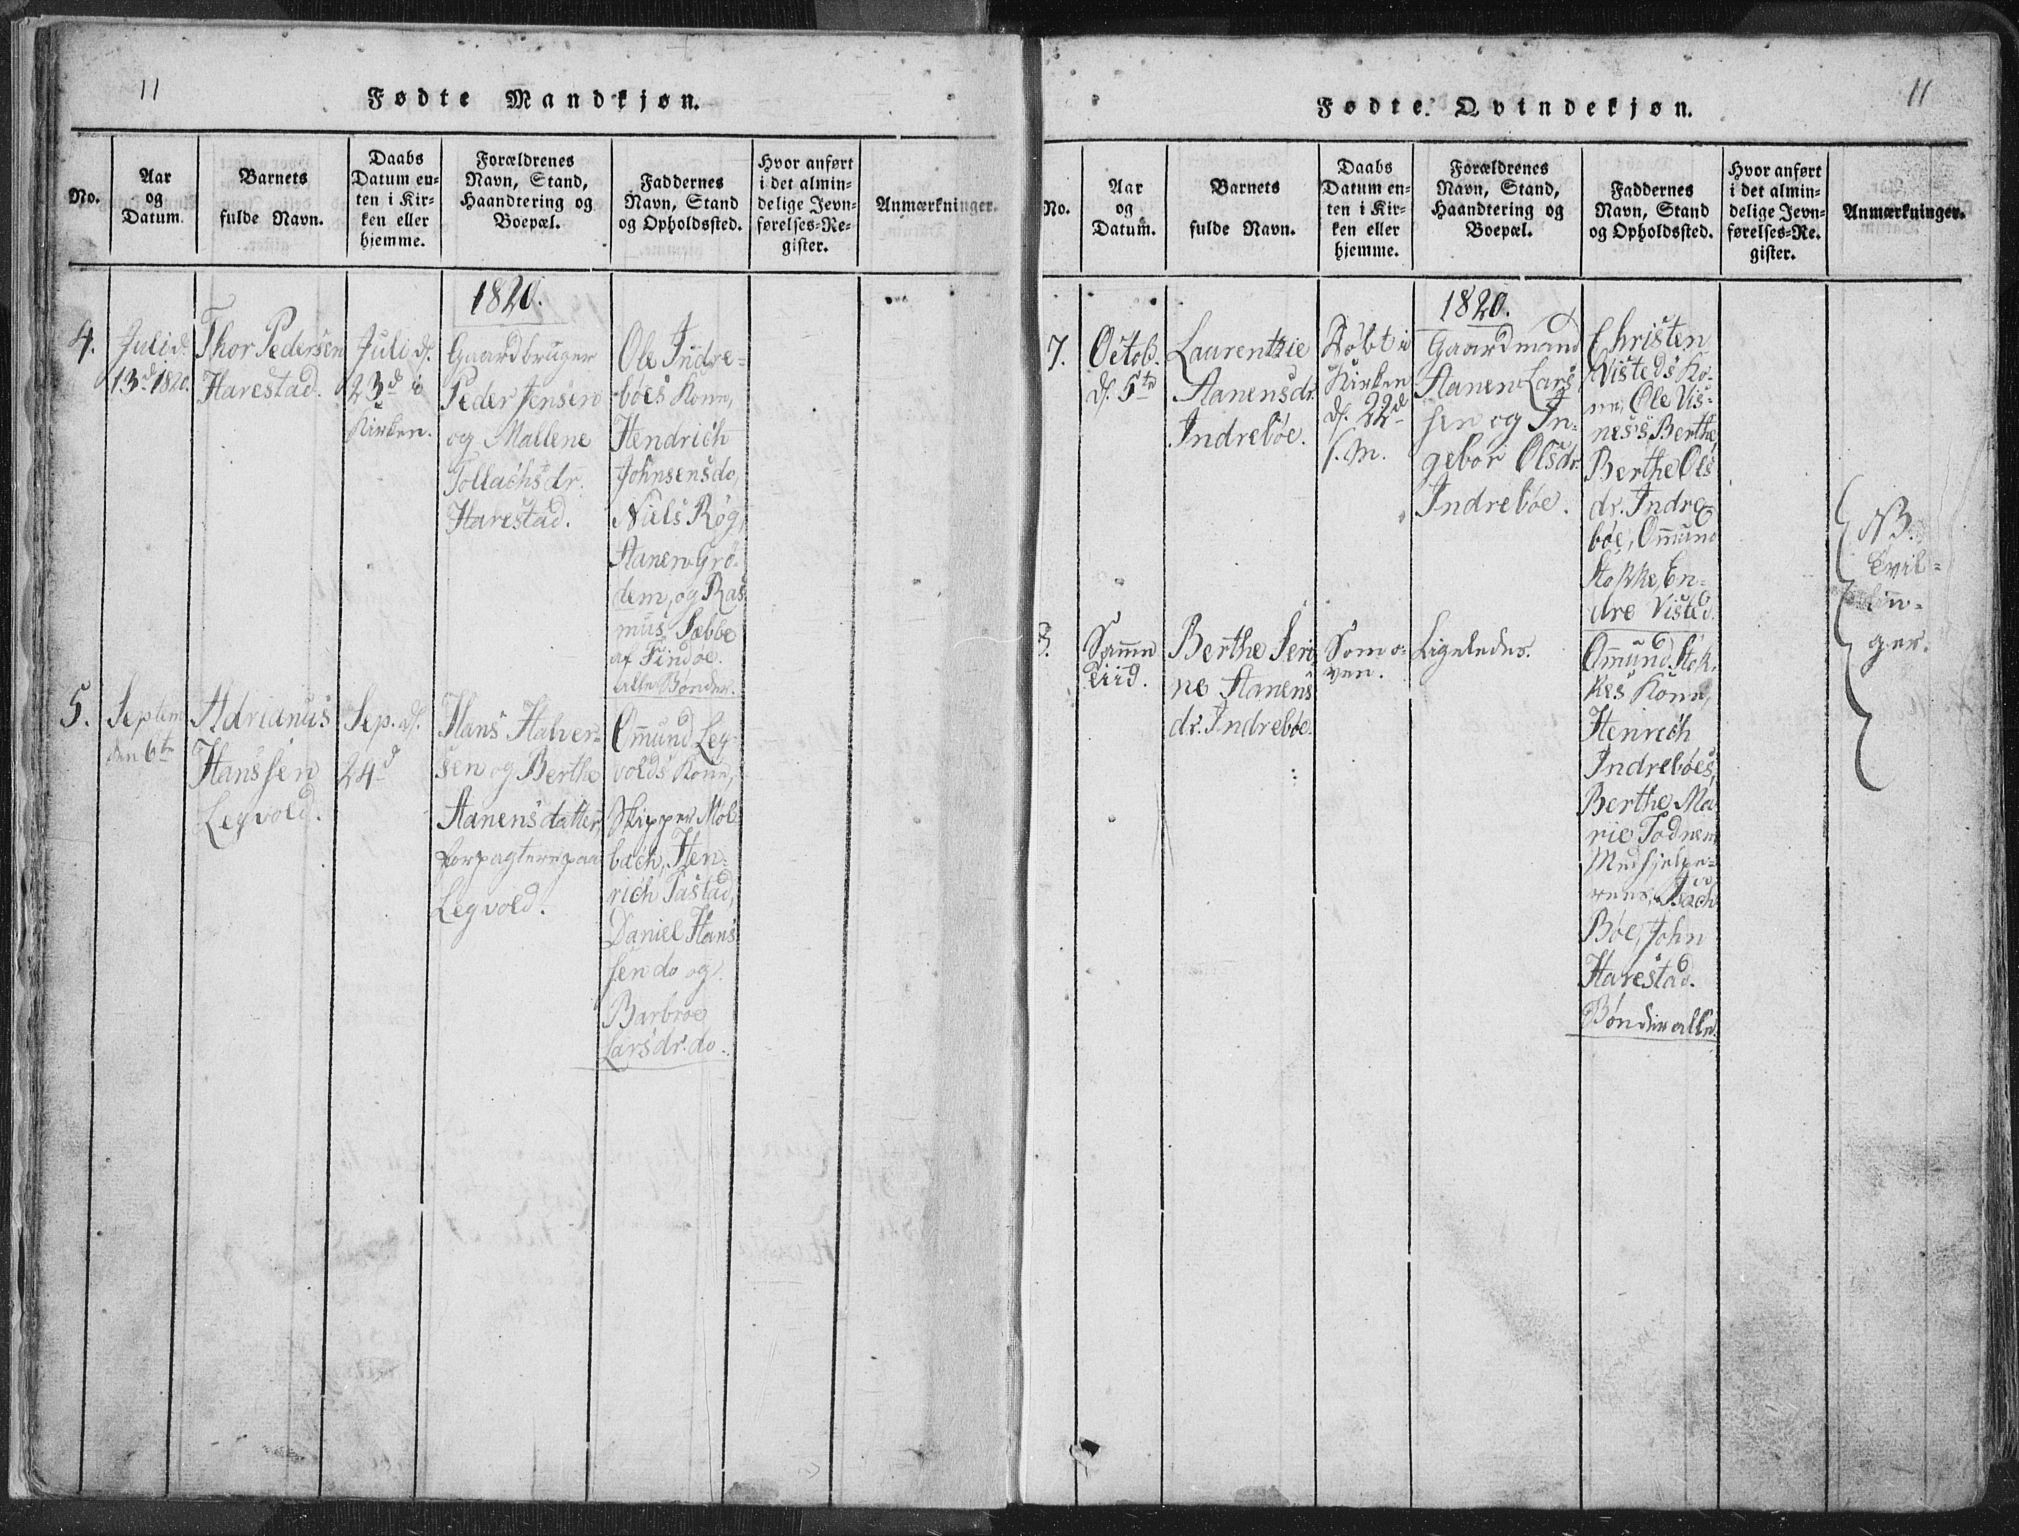 11
Fødte Mandkjøn.
No.
Aar
og
Datum.
Barnets
fulde Navn.
Daabs
Datum en-
ten i Kir-
ken eller
hjemme.
Forældrenes
Navn, Stand,
Haandtering og
Boepæl.
Faddernes
Navn, Stand
og Opholdssted.
Hvor anført
i det almin-
delige Jevn-
førelses-Re-
gister.
Anmærkninger.
1820.
4.
Juli d.
13d 1820.
Thor Pedersen
Harestad.
Juli d.
23d i
Kirken.
Gaardbruger
Peder Jensen
og Mallene
Tollachsdr.
Harestad.
Ole Indre-
bøes Kone,
Hendrich
Johnsens do,
Niels Røg,
Aanen Grø-
dem, og Ras-
mus Sæbbe
af Findøe.
alle Bønder.
5.
Septem
den 6te
Adrianus
Hanssen
Legvold.
Sep. d.
24d
Hans Halver-
sen og Berthe
Aanensdatter,
forpagtere paa
Legvold.
Ommund Leg-
volds Kone,
Skipper Mol-
bach, Hen-
rich Tastad,
Daniel Hans-
sen do og
Barbroe
Larsdr. do.
11
Fødte Qvindekjøn.
No.
Aar
og
Datum.
Barnets
fulde Navn.
Daabs
Datum en-
ten i Kir-
ken eller
hjemme.
Forældrenes
Navn, Stand,
Haandtering og
Boepæl.
Faddernes
Navn, Stand
og Opholdssted.
Hvor anført
i det almin-
delige Jevn-
førelses-Re-
gister.
Anmærkninger.
1820.
7.
Octob.
d. 5te
Laurentzie
Aanensdr.
Indrebøe.
Døbt i
Kirken
d. 22d
s. M.
Gaardmand
Aanen Lars-
sen og In-
gebor Olsdr.
Indrebøe.
Christen
Visteds Ko-
ne, Ole Vis-
nes's Berthe
Berthe Ols-
dr. Indre-
bøe, Ommund
Stokke, En-
dre Visted.
8.
Samme
Tiid.
Berthe Seri-
ne Aanens-
dr. Indrebøe.
Som o-
ven.
Ligeledes.
Ommund Stok-
kes Kone,
Henrich
Indrebøes,
Berthe Ma-
rie Todnem
Medhjelpe-
rens,
Bøe, John
Harestad.
Bønder alle.
NB.
Tvil-
lin-
ger.